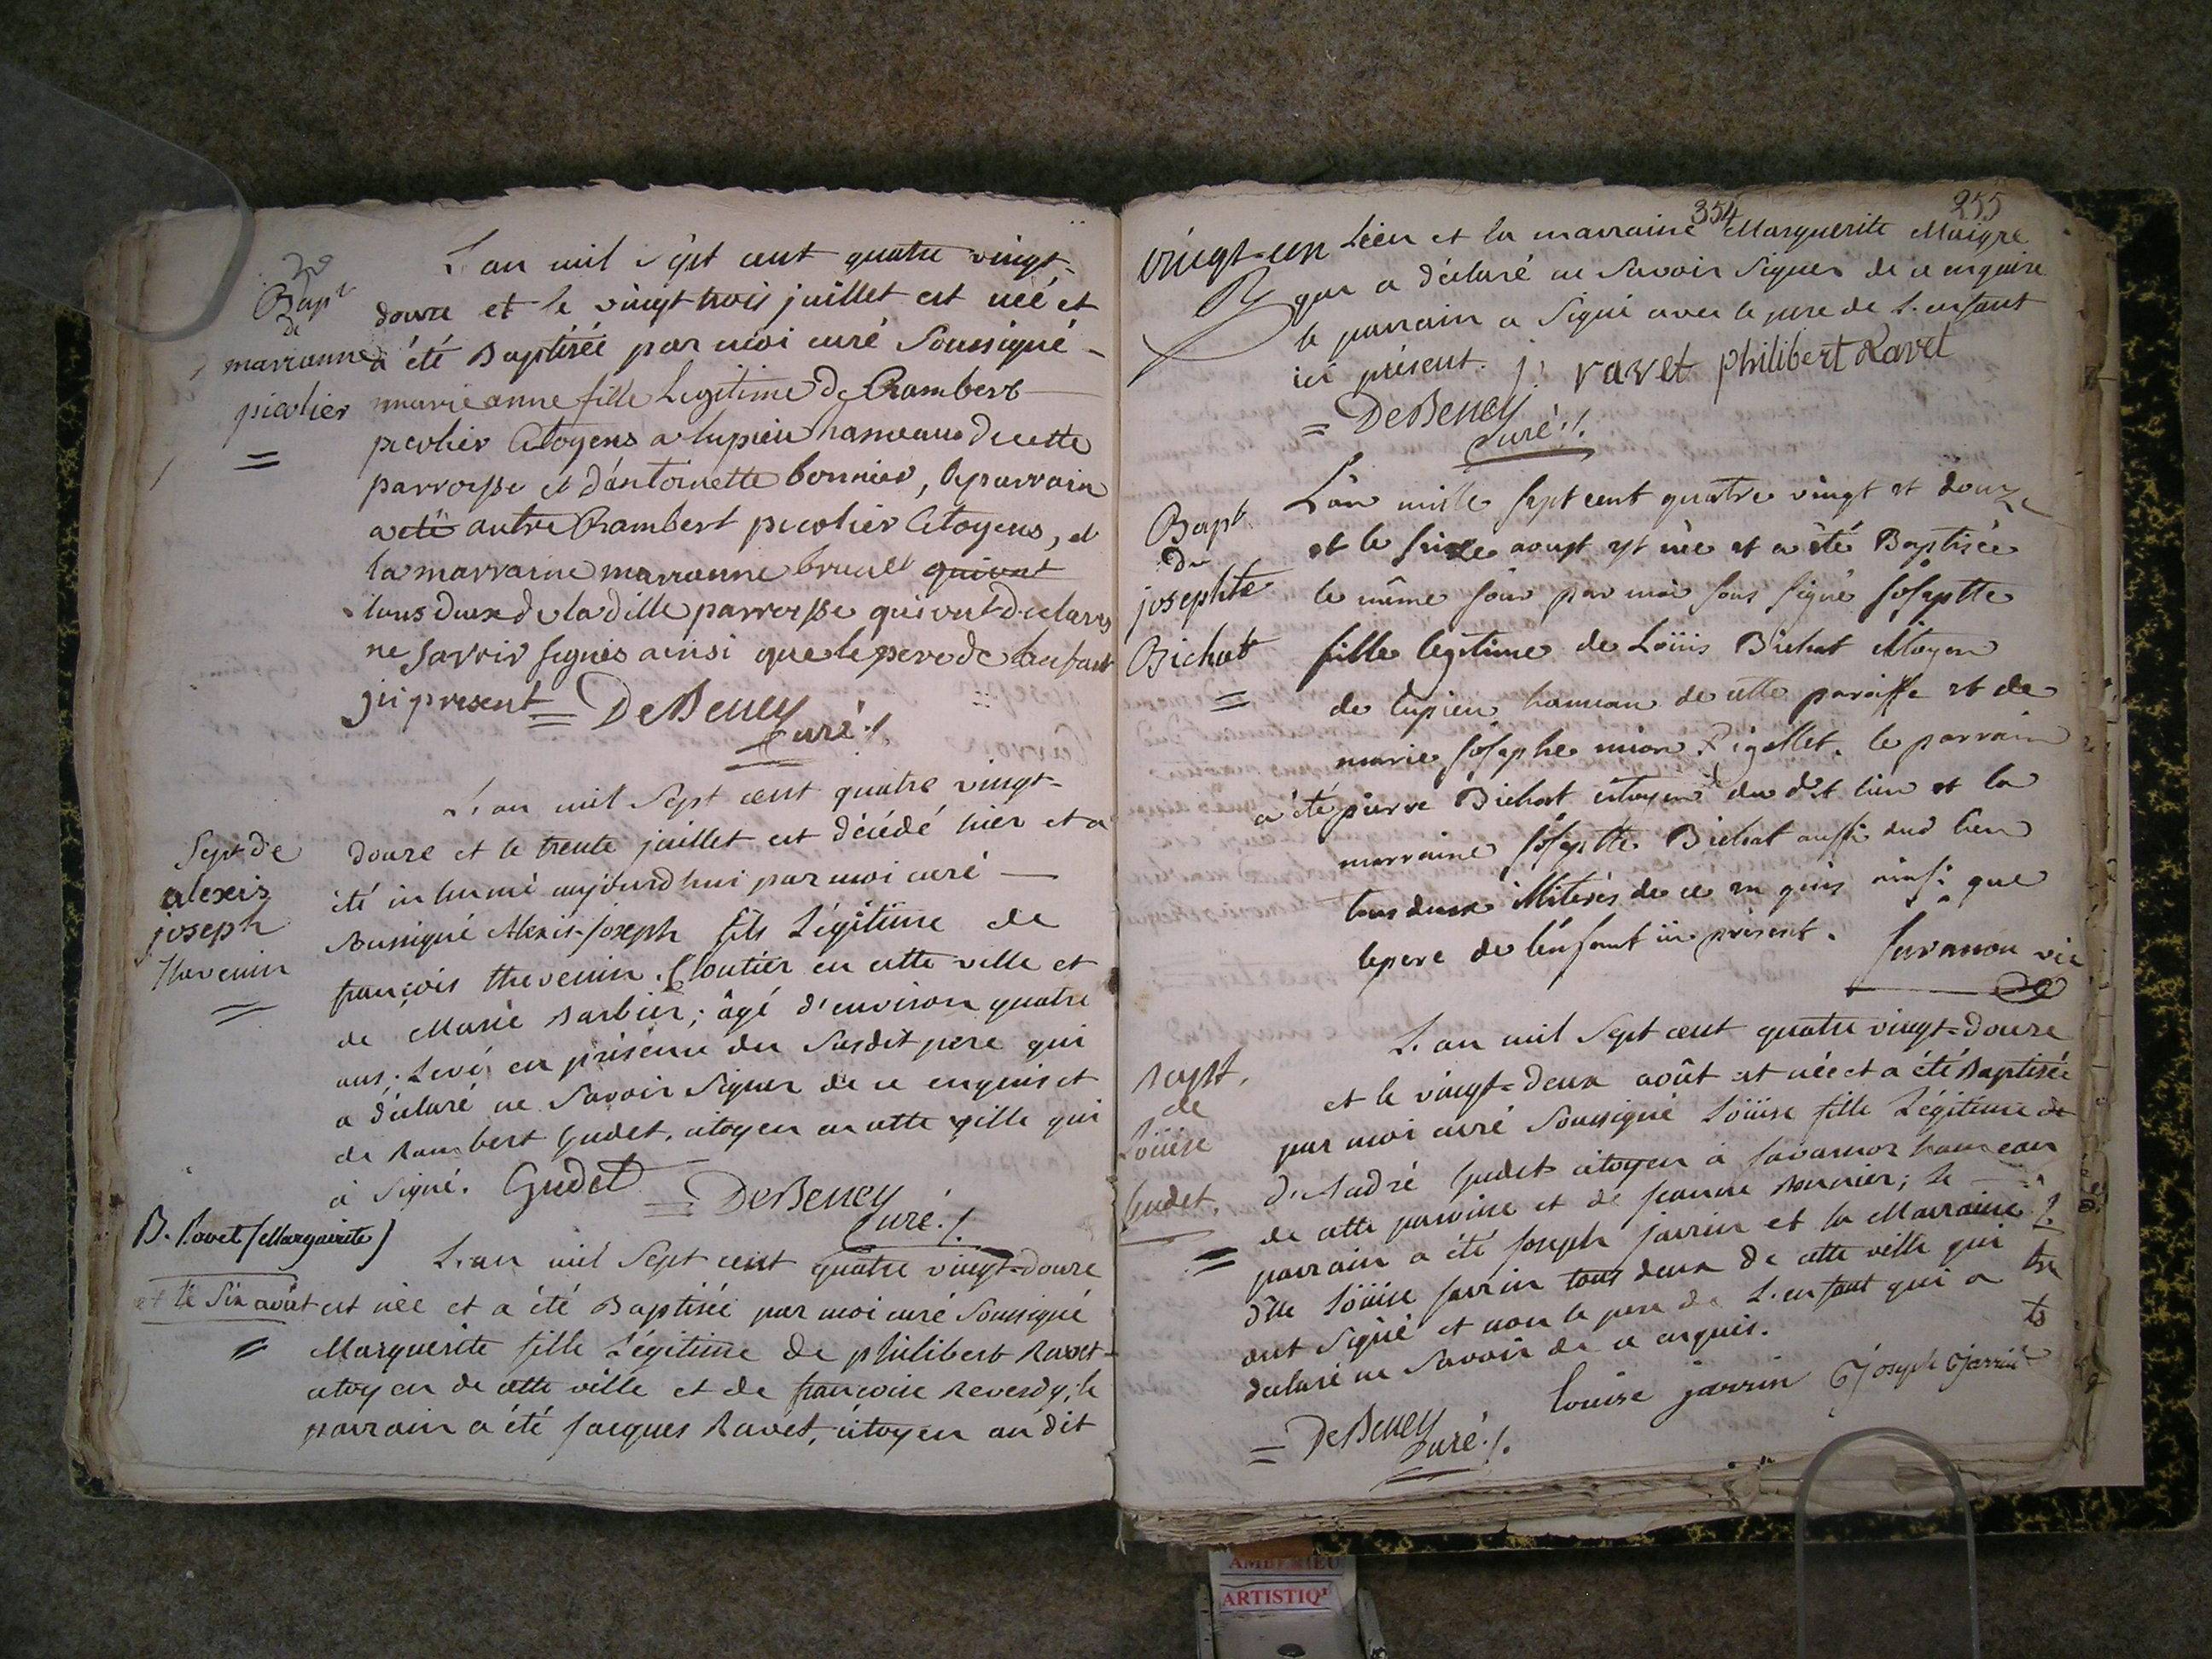 Bapt
de
marianne
picolier
L'an mil sept cent quatre vingt-
douze et le vingt trois juillet est née et
a été Baptisée par moi curé Soussigné -
marie anne fille Legitime De Rambert
picolier Citoyens a lupieu hameaux de cette
parroisse et d'antoinette bonnier, le parrain
a été autre Rambert picolier Citoyens, et
la marraine marianne qui ont
tous deux de la ditte parroisse qui ont declarés
ne savoir signés ainsi que le pere de l'enfant
ici present = DeBeney
Curé
Sept de
alexis
joseph
Thevenin
L'an mil Sept cent quatre vingt-
douze et le trente juillet est décédé hier et a
été inhumé aujourd'hui par moi curé -
soussigné Alexis-joseph fils Légitime de
françois thevenin. Cloutier en cette ville et
de Marie Barbier; âgé d'environ quatre
ans; Levé en présence du Susdit pere qui
a déclaré ne Savoir Signer de ce enquis et
de Rambert Gudet, citoyen en cette ville qui
a Signé. Gudet = DeBeney
Curé
B. Ravet (Marguerite)
L'an mil Sept cent quatre vingt-douze
et le Six août est née et a été Baptisée par moi curé Soussigné
Marguerite fille Légitime de philibert Ravet-
citoyen de cette ville et de françoise Reverdy; le
parrain a été jacques Ravet, citoyen au dit
354 255
vingt-un Lieu et la marraine Marguerite Maigre
qui a déclaré ne Savoir Signer de ce enquise
le parrain a Signé avec le pere de L'enfant
ici présent. j. ravet philibert Ravet
= DeBeney
Curé
Bapt
De
josephte
Bichat
L'an mille sept cent quatre vingt et douze
et le seize aoust est née et a été Baptisée
le même jour par moi sous signé josephte
fille legitime de Loüis Bichat citoyen
de lupieu hameau de cette paroisse et de
marie josephe mion Rigollet. le parrain
a été pierre Bichat citoyen du dit lieu et la
marraine josephte Bichat aussi dud lieu
tous deux illiterés de ce en quis ainsi que
le pere de l'enfant ici présent. vic
Bapt.
de
Loüise
Gudet.
L'an mil Sept cent quatre vingt-douze
et le vingt-deux août est née et a été Baptisée
par moi curé Soussigné Loüise fille Légitime de
d'André Gudet citoyen à hameau
de cette paroisse et de jeanne Bonnier; Le -
parrain a été joseph jarrin et la Marraine
dlle Loüise jarrin tous deux de cette ville qui
ont Signé et non le pere de L'enfant qui a
déclaré ne Savoir de ce enquis.
louise jarrin joseph jarrin
= DeBeney
Curé
AMBERIEU
ARTISTIQ